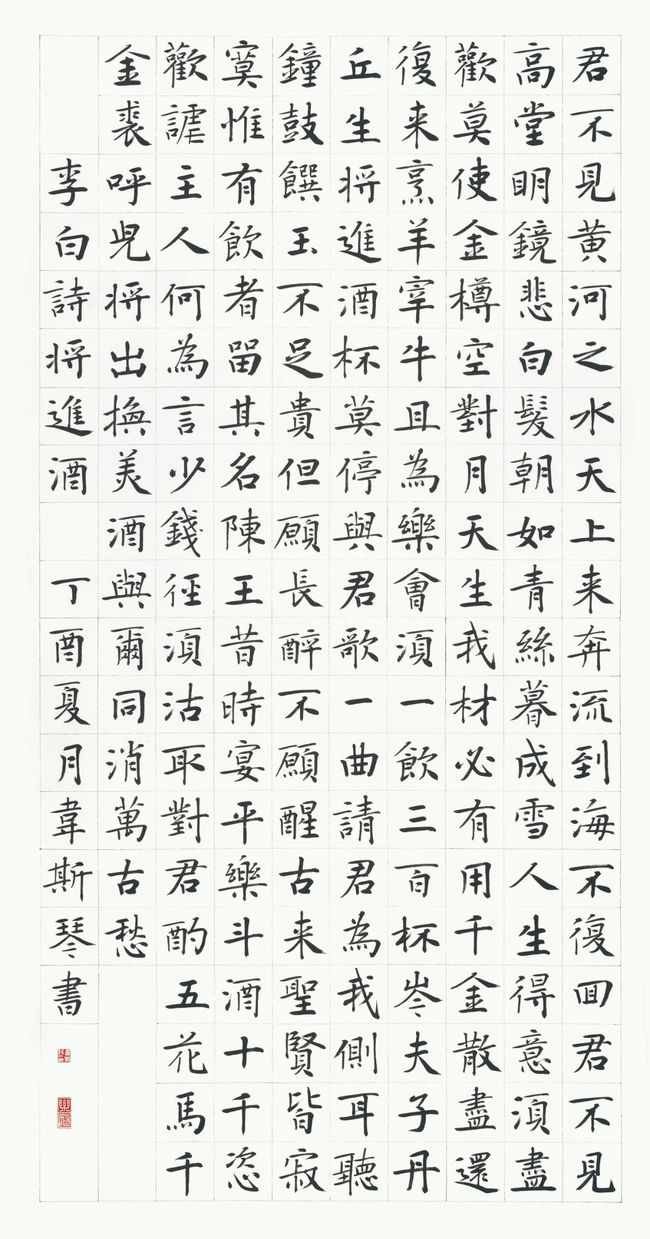 君不見黄河之水天上来奔流到海不復囬君不見
高堂明鏡悲白髮朝如青絲暮成雪人生得意須盡
歡莫使金樽空對月天生我材必有用千金散盡還
復来烹羊宰牛且為樂會須一飲三百杯岑夫子丹
丘生将進酒杯莫停與君歌一曲請君為我側耳聽
鐘鼓饌玉不足貴但願長醉不願醒古来聖賢皆寂
寞惟有飲者留其名陳王昔時宴平樂斗酒十千恣
歡謔主人何為言少錢徑須沽取對君酌五花馬千
金裘呼兒将出換美酒與爾同消萬古愁
李白詩将進酒 丁酉夏月韋斯琴書